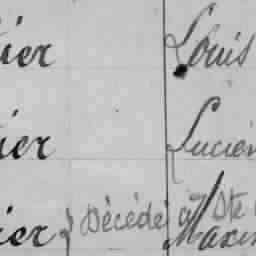 ier Louis
ier Lucien
ier Décédé à Ste
Maxim